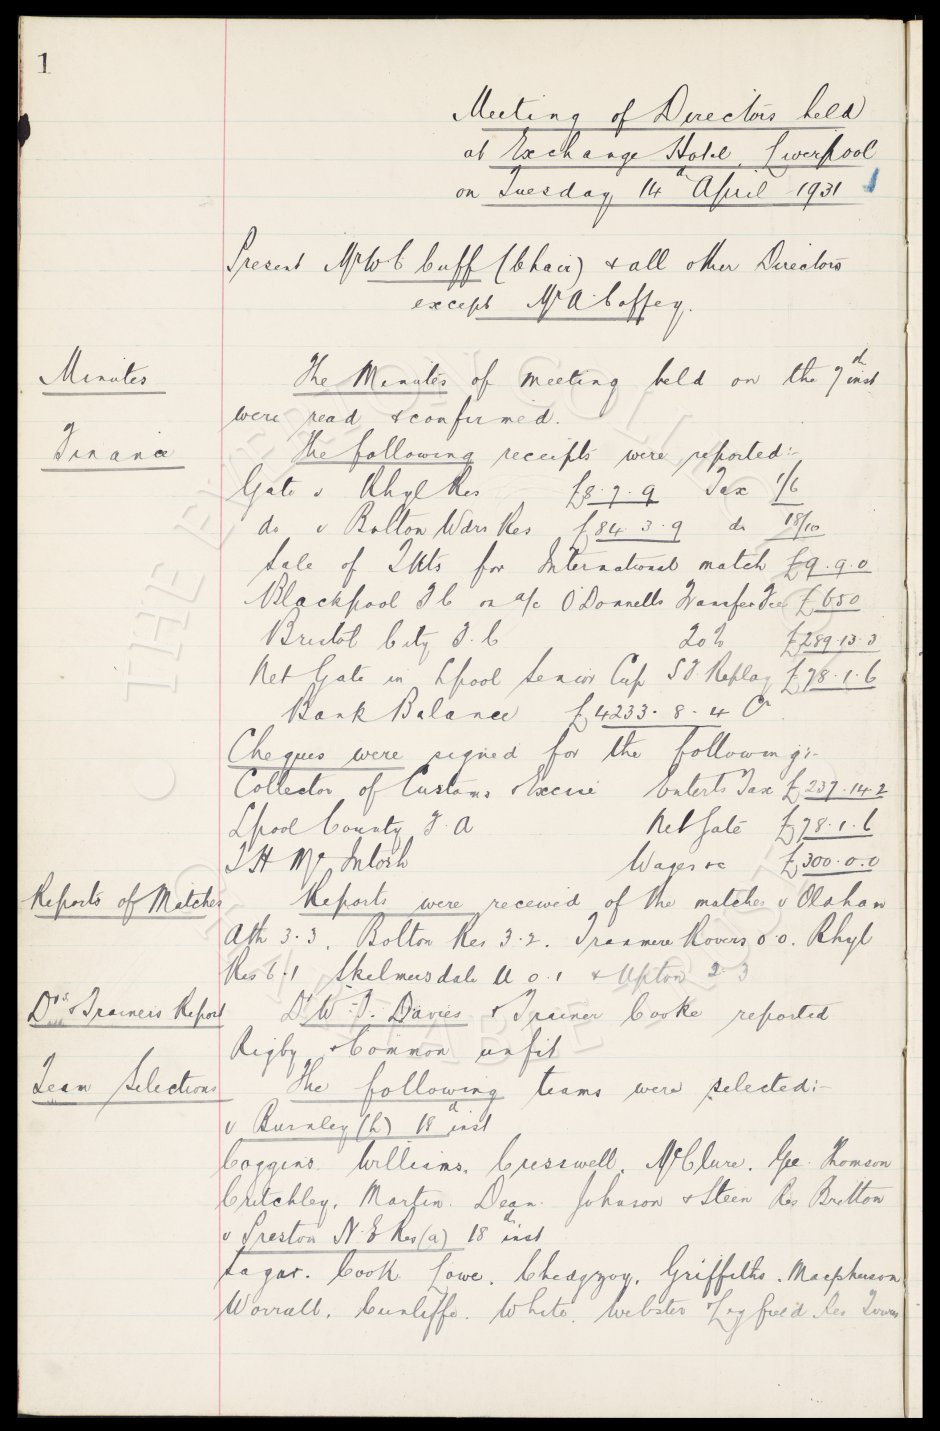 1
Meeting of Directors held
at Exchange Hotel, Liverpool
on Tuesday 14th April 1931
Present Mr W C Cuff (Chair) & all other Directors
except Mr A Coffey.
Minutes The Minutes of meeting held on the 7th inst
were read & confirmed.
Finance The following receipts were reported:-
Gate v Rhyl Res £8.7.9 Tax 1/6
do v Bolton Wdrs Res £84.3.9 do 18/10
Sale of Tkts for International match £9.9.0
Blackpool F C on a/c O'Donnells Transfer Fee £650
Bristol City F.C 20% £289.13.3
Net Gate in Lpool Senior Cup SF Replay £78.1.6
Bank Balance £4233.8.4 Cr
Cheques were signed for the following:-
Collector of Customs & Excise Enterts Tax £237.14.2
Lpool County F.A Net Gate £78.1.6
T H McIntosh Wages &c £300.0.0
Reports of Matches Reports were received of the matches v Oldham
Ath 3.3, Bolton Res 3.2. Tranmere Rovers 0.0. Rhyl
Res 6.1 Skelmersdale U 0.1 & Upton 2.3
Drs & Trainers Report Dr W.J. Davies & Trainer Cooke reported
Rigby & Common unfit
Team Selections The following teams were selected:-
v Burnley (h) 18th inst
Coggins. Williams. Cresswell, McClure. Gee. Thomson
Critchley, Martin. Dean. Johnson & Stein Res Britton
v Preston N.E Res (a) 18th inst
Sagar. Cook Lowe. Chedgzoy. Griffiths. Macpherson
Worrall. Cunliffe. White. Webster Legfield. Res
THE EVERTON COLLECTION CHARITABLE TRUST